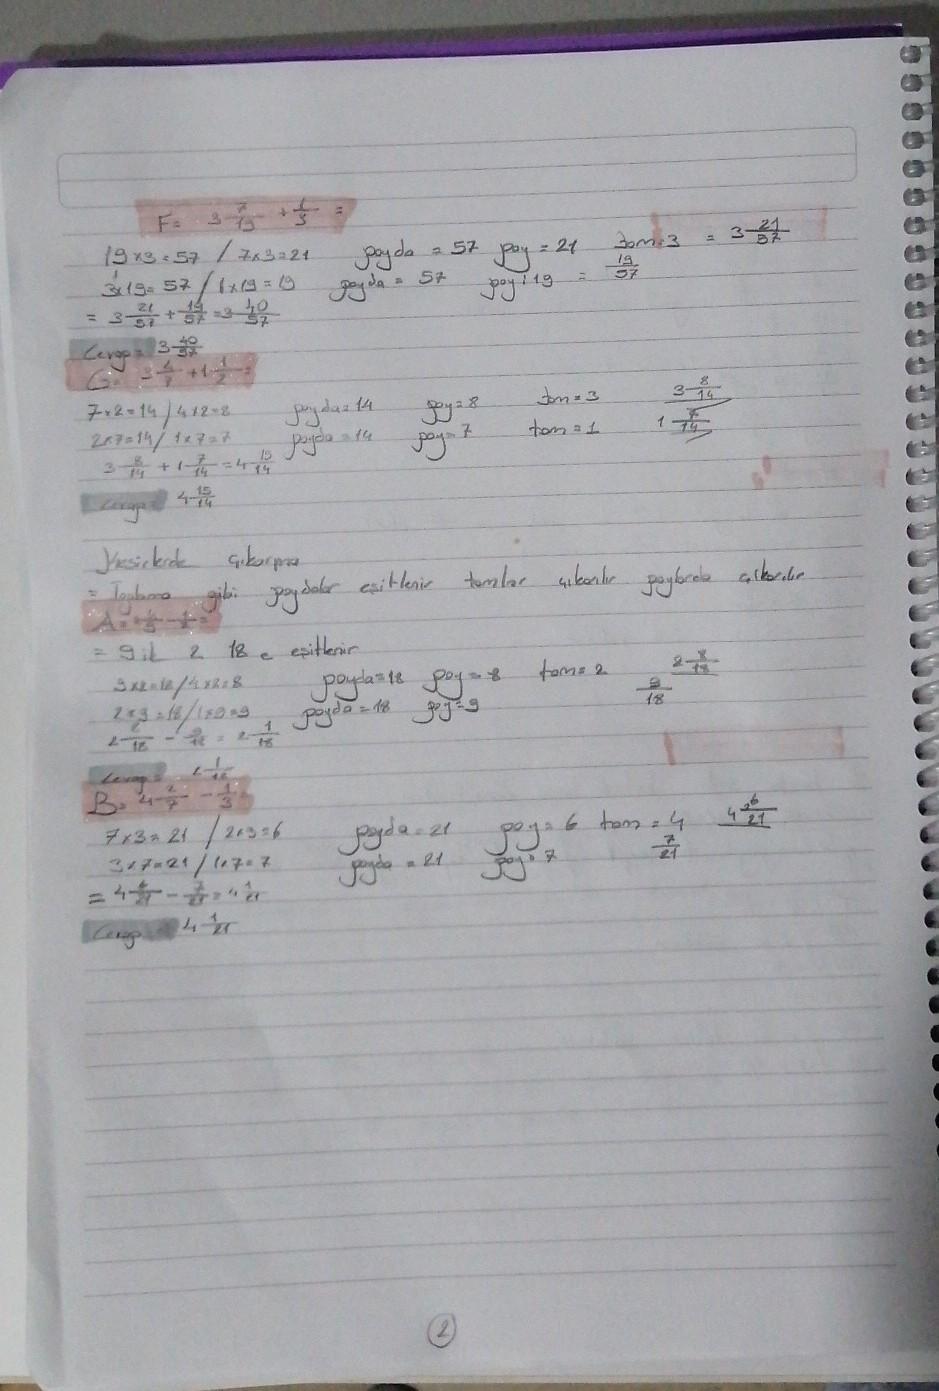 F= 3 7/19 + 1/3 =
19x3=57 / 7x3=21 payda = 57 pay = 21 tam=3 = 3 21/57
3x19=57 / 1x19=19 payda = 57 pay=19 = 19/57
= 3 21/57 + 19/57 = 3 40/57
Cevap= 3 40/57
G= 3 4/7 + 1 1/2 =
7x2=14 / 4x2=8 payda=14 pay=8 tam=3 3 8/14
2x7=14 / 1x7=7 payda=14 pay=7 tam=1 1 7/14
3 8/14 + 1 7/14 = 4 15/14
Cevap= 4 15/14
Kesirlerde çıkarma
= Toplama gibi paydalar eşitlenir tamlar çıkarılır paylarda çıkarılır
A=
= 9 ile 2 18 e eşitlenir
9x2=18 / 4x2=8 payda=18 pay=8 tam=2 2 8/18
2x9=18 / 1x9=9 payda=18 pay=9 9/18
2 8/18 - 9/18 = 2 1/18
Cevap= 2 1/18
B= 4 2/7 - 1/3 =
7x3=21 / 2x3=6 payda=21 pay=6 tam=4 4 6/21
3x7=21 / 1x7=7 payda=21 pay=7 7/21
= 4 6/21 - 7/21 = 4 1/21
Cevap= 4 1/21
2